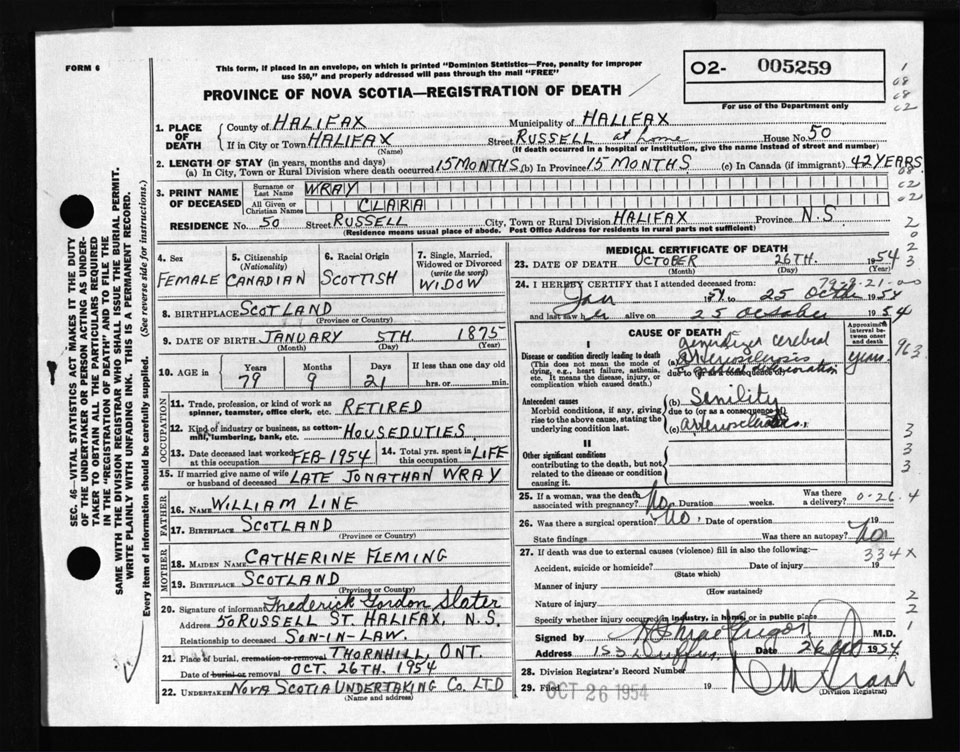 FORM 6
This form, if placed in an envelope, on which is printed "Dominion Statistics—Free, penalty for improper
use $50," and properly addressed will pass through the mail "FREE"
O2- 005259
For use of the Department only
PROVINCE OF NOVA SCOTIA—REGISTRATION OF DEATH
1. PLACE OF DEATH County of HALIFAX Municipality of HALIFAX
If in City or Town HALIFAX (Name) Street RUSSELL at home House No. 50
(If death occurred in a hospital or institution, give the name instead of street and number)
2. LENGTH OF STAY (in years, months and days)
(a) In City, Town or Rural Division where death occurred 15 MONTHS (b) In Province 15 MONTHS (c) In Canada (if immigrant) 42 YEARS
3. PRINT NAME OF DECEASED Surname or Last Name WRAY
All Given or Christian Names CLARA
RESIDENCE No. 50 Street RUSSELL City, Town or Rural Division HALIFAX Province N.S
(Residence means usual place of abode. Post Office Address for residents in rural parts not sufficient)
4. Sex FEMALE
5. Citizenship (Nationality) CANADIAN
6. Racial Origin SCOTTISH
7. Single, Married, Widowed or Divorced (write the word) WIDOW
8. BIRTHPLACE SCOTLAND
(Province or Country)
9. DATE OF BIRTH JANUARY 5TH. 1875
(Month) (Day) (Year)
10. AGE in Years 79 Months 9 Days 21 If less than one day old hrs. or min.
OCCUPATION
11. Trade, profession, or kind of work as spinner, teamster, office clerk, etc. RETIRED
12. Kind of industry or business, as cotton-mill, lumbering, bank, etc. HOUSEDUTIES.
13. Date deceased last worked at this occupation FEB-1954
14. Total yrs. spent in this occupation LIFE
15. If married give name of wife or husband of deceased LATE JONATHAN WRAY
FATHER
16. NAME WILLIAM LINE
17. BIRTHPLACE SCOTLAND
(Province or Country)
MOTHER
18. MAIDEN NAME CATHERINE FLEMING
19. BIRTHPLACE SCOTLAND
(Province or Country)
20. Signature of informant Frederick Gordon Slater
Address 50 RUSSELL ST. HALIFAX, N.S.
Relationship to deceased SON-IN-LAW.
21. Place of burial, cremation or removal THORNHILL, ONT.
Date of burial or removal OCT. 26TH. 1954
22. UNDERTAKER NOVA SCOTIA UNDERTAKING CO. LTD
(Name and address)
MEDICAL CERTIFICATE OF DEATH
23. DATE OF DEATH OCTOBER 26TH. 1954
(Month) (Day) (Year)
79-9-21-00
24. I HEREBY CERTIFY that I attended deceased from:
Jan 1954 to 25 October 1954
and last saw her alive on 25 October 1954
CAUSE OF DEATH
Approximate interval between onset and death
I
Disease or condition directly leading to death
(This does not mean the mode of dying, e.g., heart failure, asthenia, etc. It means the disease, injury, or complication which caused death.)
(a) generalized cerebral arteriosclerosis
due to (or as a consequence of)
years
963
Antecedent causes
Morbid conditions, if any, giving rise to the above cause, stating the underlying condition last.
(b) Senility
due to (or as a consequence of)
(c) arteriosclerosis
II
Other significant conditions
contributing to the death, but not related to the disease or condition causing it.
25. If a woman, was the death associated with pregnancy? No Duration weeks. Was there a delivery? 0-26.4
26. Was there a surgical operation? No. Date of operation 19
State findings Was there an autopsy? No
334X
27. If death was due to external causes (violence) fill in also the following:—
Accident, suicide or homicide? Date of injury 19
(State which)
Manner of injury
(How sustained)
Nature of injury
Specify whether injury occurred in industry, in home, or in public place
Signed by M.D.
Address 153 Duffus. Date 26 Oct 1954
28. Division Registrars Record Number
29. Filed OCT 26 1954 19
(Division Registrar)
SEC. 46—VITAL STATISTICS ACT MAKES IT THE DUTY
OF THE UNDERTAKER OR PERSON ACTING AS UNDER-
TAKER TO OBTAIN ALL THE PARTICULARS REQUIRED
IN THE "REGISTRATION OF DEATH" AND TO FILE THE
SAME WITH THE DIVISION REGISTRAR WHO SHALL ISSUE THE BURIAL PERMIT.
WRITE PLAINLY WITH UNFADING INK. THIS IS A PERMANENT RECORD.
Every item of information should be carefully supplied. (See reverse side for instructions.)